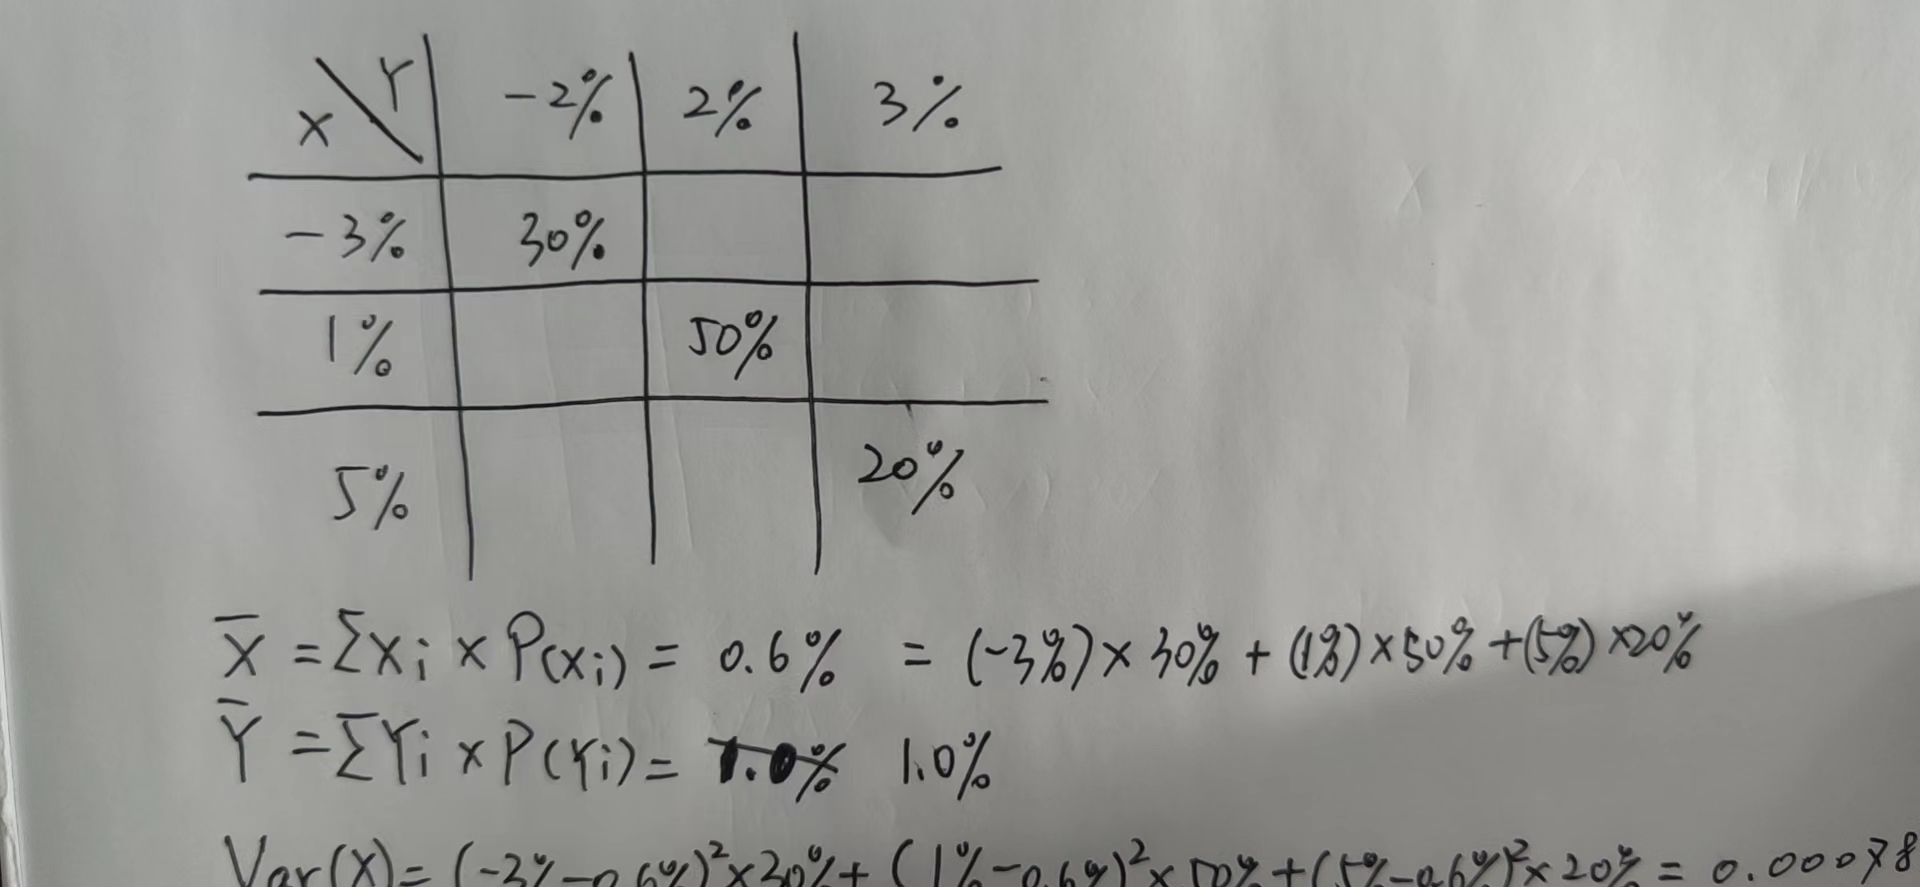 X \ Y -2% 2% 3%
-3% 30%
1% 50%
5% 20%
X̄ = ΣXi × P(Xi) = 0.6% = (-3%) × 30% + (1%) × 50% + (5%) × 20%
Ȳ = ΣYi × P(Yi) = 1.0% 1.0%
Var(X) = (-3% - 0.6%)² × 30% + (1% - 0.6%)² × 50% + (5% - 0.6%)² × 20% = 0.00078